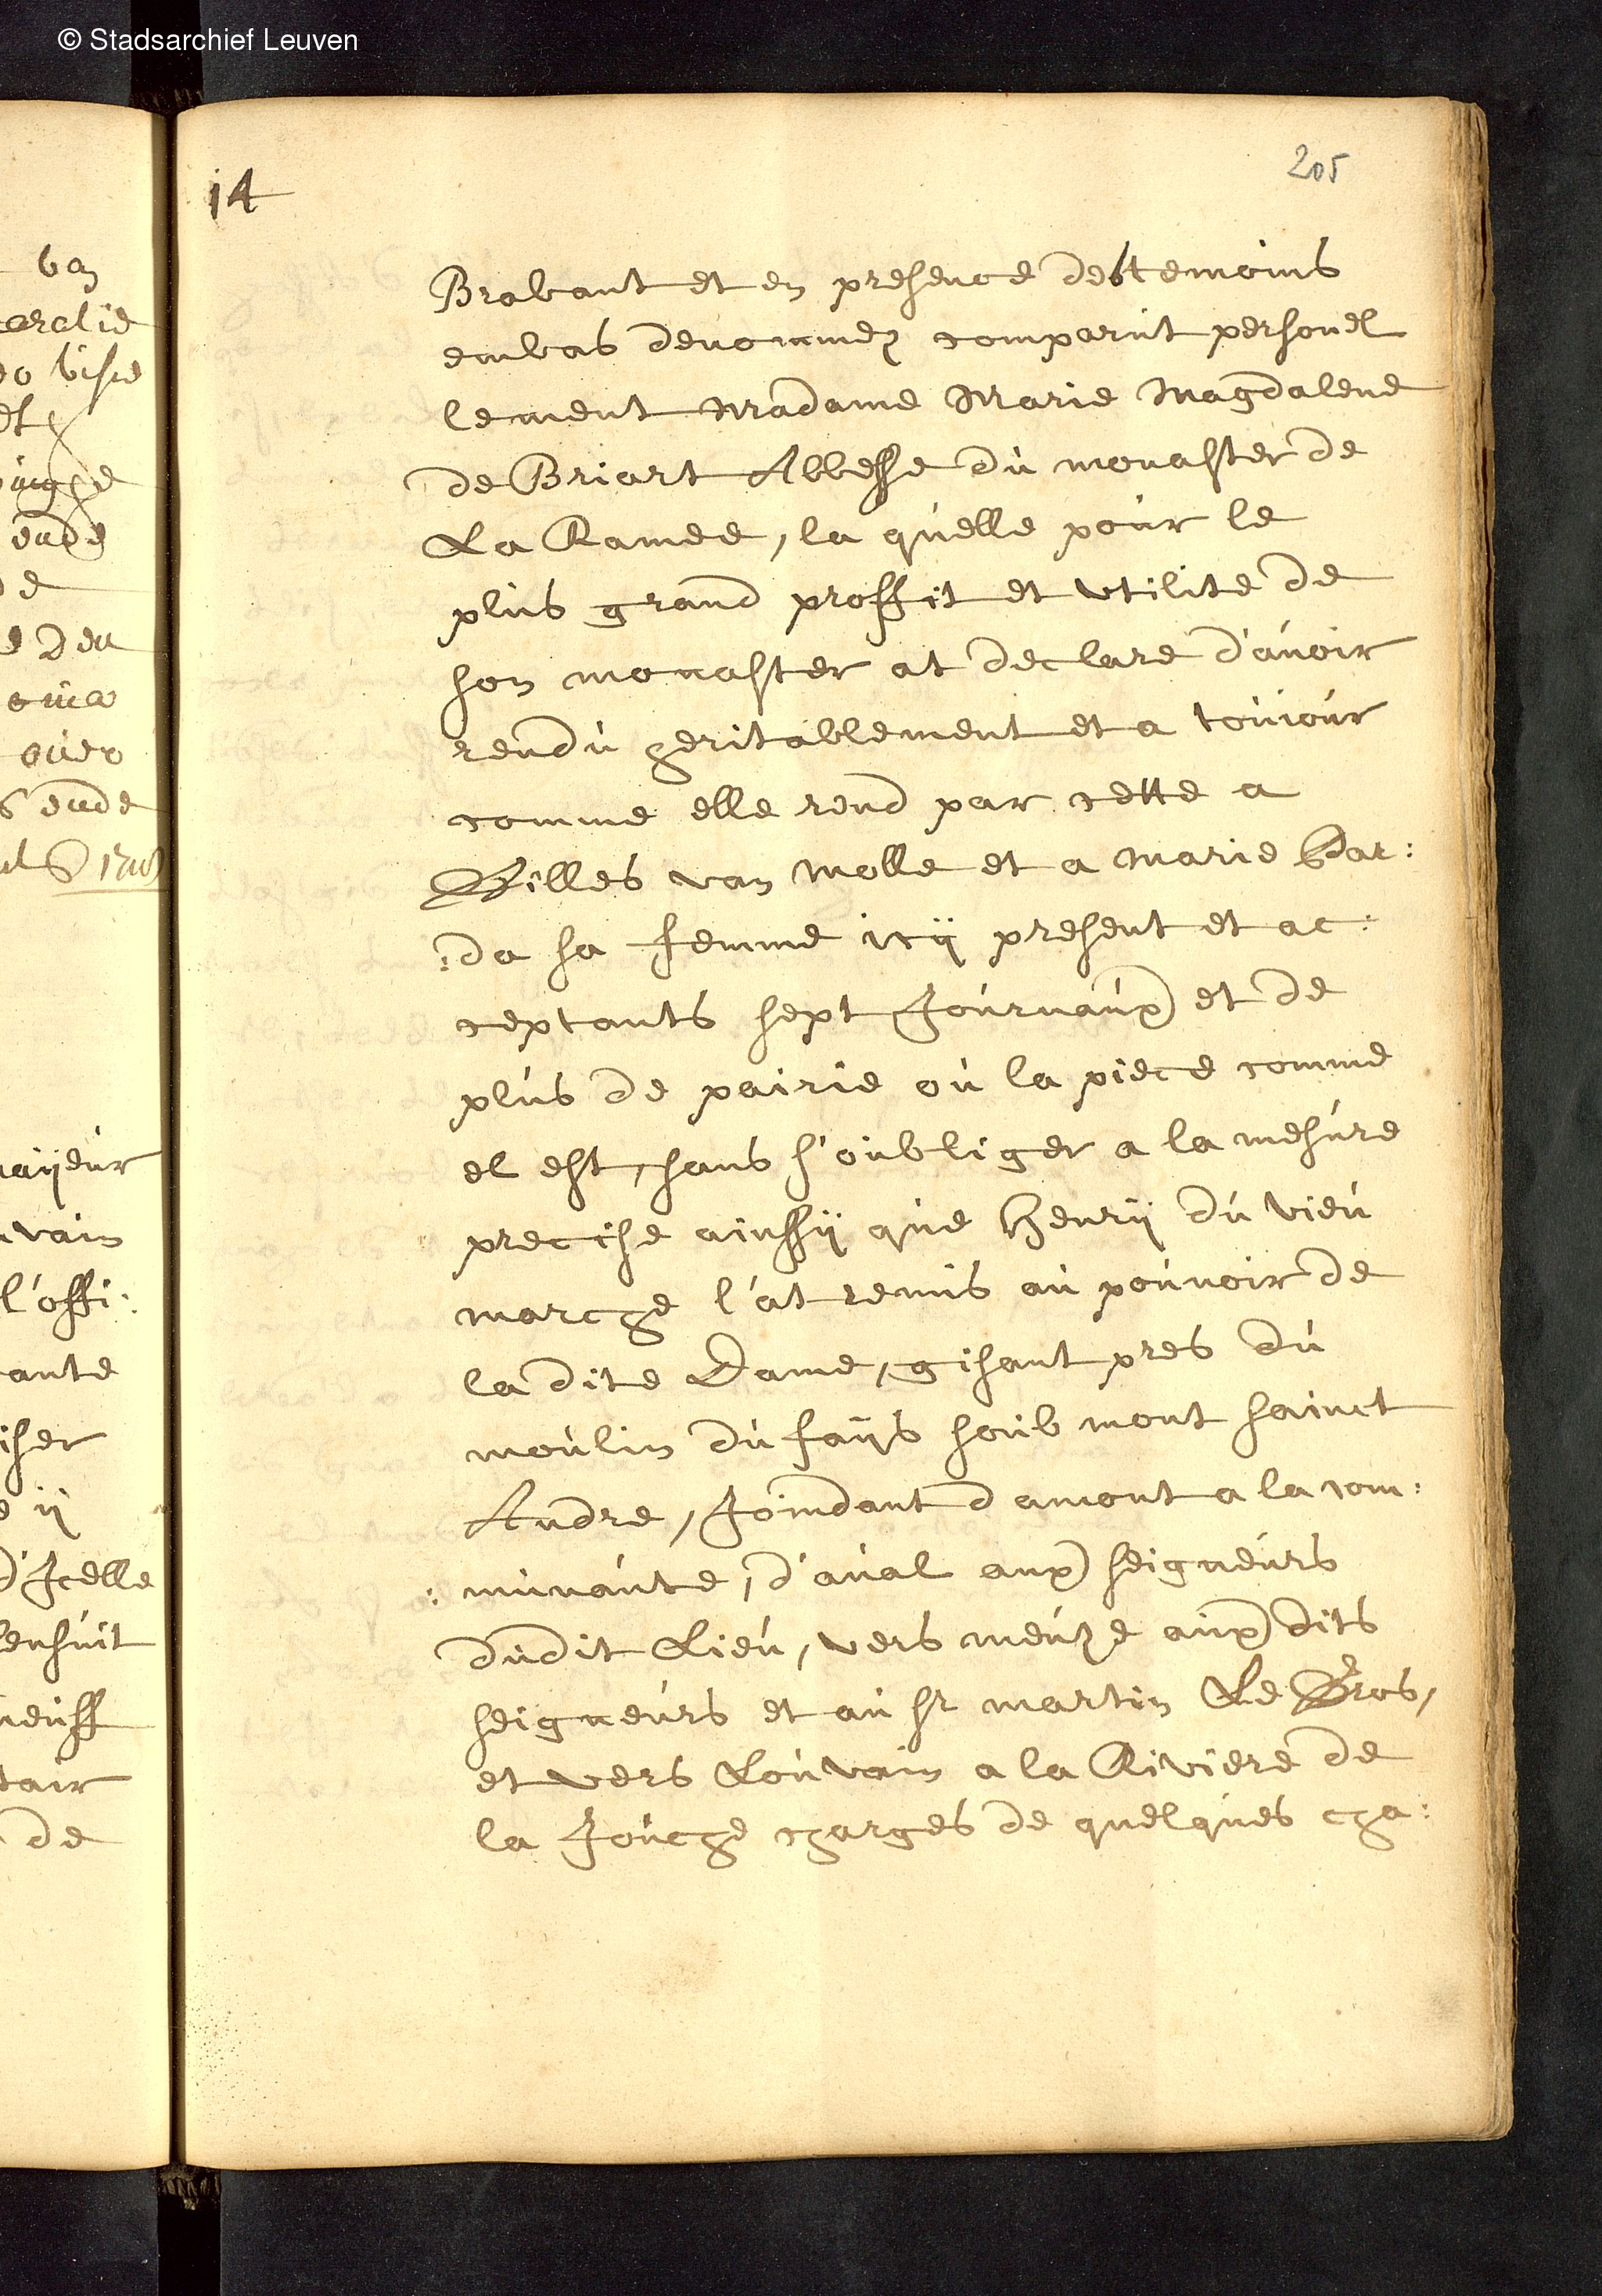 © Stadsarchief Leuven
14
205
Brabant et en presence des temoins
embas denommez comparut personel
lement Madame Marie Magdalene
de Briart Abbesse du monaster de
La Ramee, la quelle pour le
plus grand proffit et utilite de
son monaster at declare d'avoir
rendu heritablement et a toujour
comme elle rend par cette a
Gilles van Molle et a Marie
:da sa femme icy present et ac:
ceptants sept Journaux et de
plus de pairie ou la piece comme
el est, sans s'oubliger a la mesure
precise ainssy que Henry du vieu
marche l'at remis au pouvoir de
la dite Dame, gisant pres du
moulin du fays soub mont sainct
Andre, Joindant d amont a la com:
:munaute, d'aval aux seigneurs
dudit Lieu, vers meuze aux dits
seigneurs et au sr martin Le Gros,
et vers Louvain a la Riviere de
la Jouche charges de quelques cha:
ayeur
vain
l'offi:
ante
iser
y
d'Icelle
lensuit
neuff
tair
de